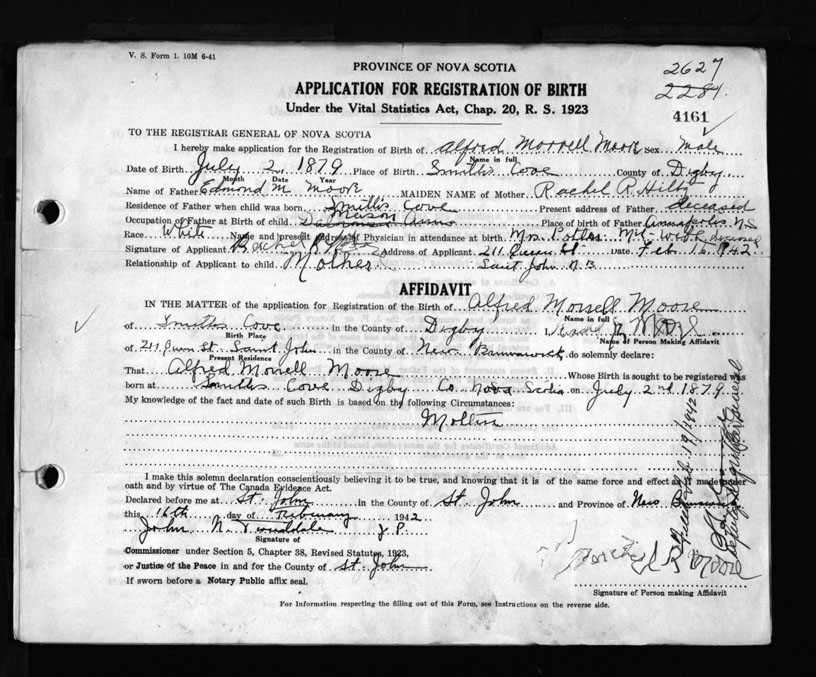 V. S. Form 1. 10M 6-41
PROVINCE OF NOVA SCOTIA
2627
APPLICATION FOR REGISTRATION OF BIRTH
2284
Under the Vital Statistics Act, Chap. 20, R. S. 1923
4161
TO THE REGISTRAR GENERAL OF NOVA SCOTIA
I hereby make application for the Registration of Birth of Alfred Morrell Moore Sex Male
Name in full
Date of Birth July 2, 1879 Place of Birth Smiths Cove County of Digby
Month Date Year
Name of Father Edmond M. Moore MAIDEN NAME of Mother Rachel R.
Residence of Father when child was born Smiths Cove Present address of Father deceased
Occupation of Father at Birth of child Place of birth of Father Annapolis N.S
Race White Name and present address of Physician in attendance at birth Mrs. Potter deceased
Signature of Applicant Rachel R Address of Applicant 211 Queen St Date Feb. 16 1942
Relationship of Applicant to child Mother Saint John N B
AFFIDAVIT
IN THE MATTER of the application for Registration of the Birth of Alfred Morrell Moore
Name in full
of Smiths Cove in the County of Digby I,
Birth Place Name of Person Making Affidavit
of 211 Queen St. Saint John in the County of New Brunswick do solemnly declare:
Present Residence
That Alfred Morrell Moore Whose Birth is sought to be registered was
born at Smiths Cove Digby Co. Nova Scotia on July 2nd 1879
My knowledge of the fact and date of such Birth is based on the following Circumstances:
Mother
I make this solemn declaration conscientiously believing it to be true, and knowing that it is of the same force and effect as if made under
oath and by virtue of The Canada Evidence Act.
Declared before me at St. John in the County of St. John and Province of New Brunswick
this 16th day of February 1942
John N. J. P.
Signature of
Commissioner under Section 5, Chapter 38, Revised Statutes, 1923,
or Justice of the Peace in and for the County of St. John
If sworn before a Notary Public affix seal.
R Moore
Signature of Person making Affidavit
For Information respecting the filling out of this Form, see Instructions on the reverse side.
Filed Feb. 19/1942
Deputy Registrar General